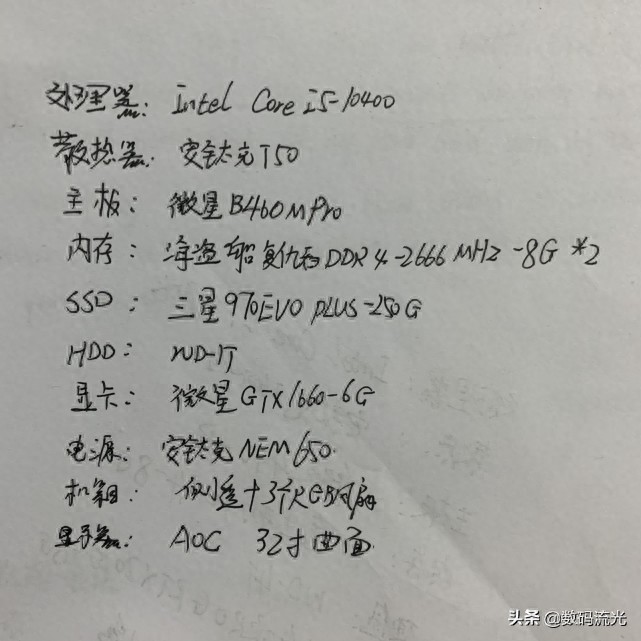 处理器: Intel Core i5-10400
散热器: 安钛克T50
主板: 微星B460M Pro
内存: 海盗船复仇者DDR4-2666MHz-8G*2
SSD: 三星970EVO PLUS-250G
HDD: WD-1T
显卡: 微星GTX1660-6G
电源: 安钛克NEM650
机箱: 侧透+3个RGB风扇
显示器: AOC 32寸曲面
头条@数码流光